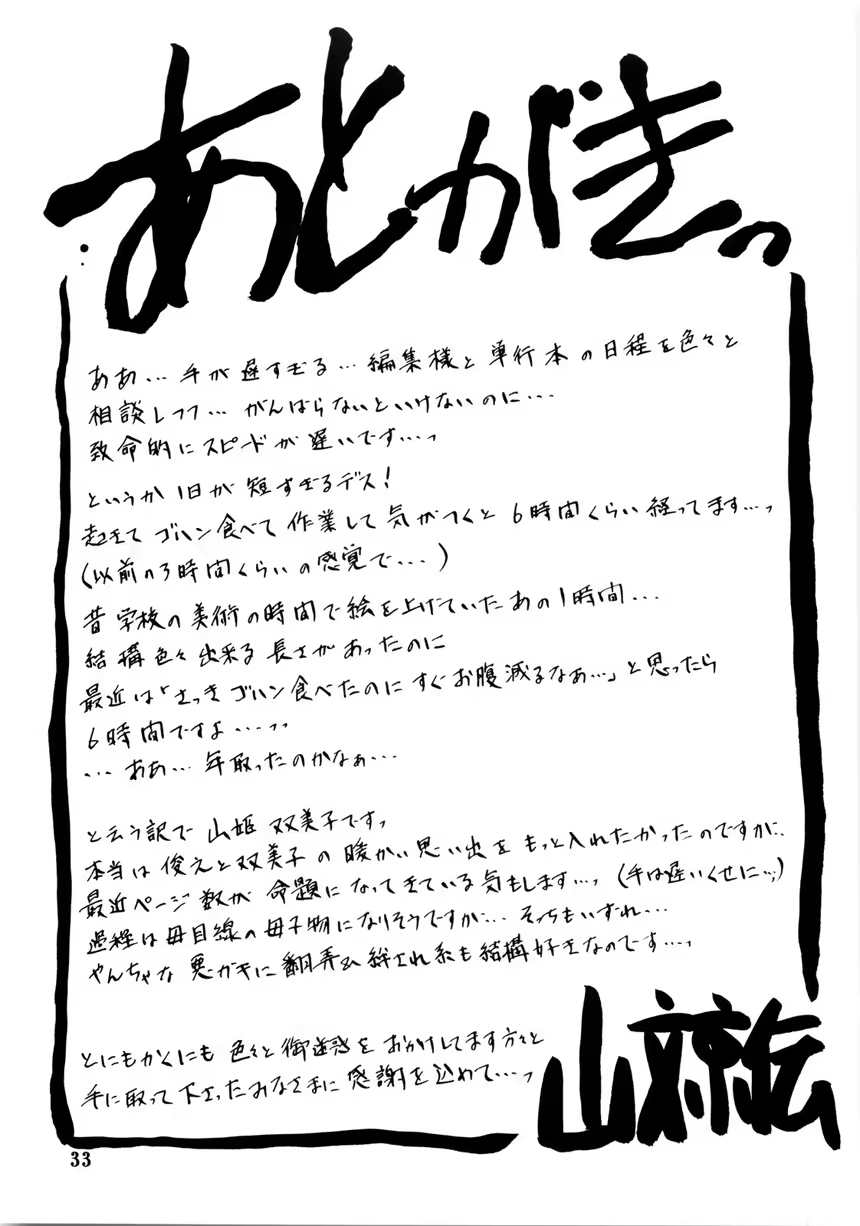 あとがきっ
ああ…手が遅すぎる…編集様と単行本の日程を色々と
相談しつつ…がんばらないといけないのに…
致命的にスピードが遅いです…っ
というか1日が短すぎるデス!
起きてゴハン食べて作業して気がつくと6時間くらい経ってます…っ
(以前の3時間くらいの感覚で…)
昔学校の美術の時間で絵を上げていたあの1時間…
結構色々出来る長さがあったのに
最近は「さっきゴハン食べたのにすぐお腹減るなあ…」と思ったら
6時間ですよ…っっ
…ああ…年取ったのかなぁ…
と云う訳で山姫双美子ですっ
本当は俊えと双美子の暖かい思い出をもっと入れたかったのですが、
最近ページ数が命題になってきている気もします…っ(手は遅いくせに…;)
過程は母目線の母子物になりそうですが…そっちもいずれ…
やんちゃな悪ガキに翻弄&絆され系も結構好きなのです…っ
とにもかくにも色々と御迷惑をおかけしてます方々と
手に取って下さったみなさまに感謝を込めて…っ
山文京伝
33